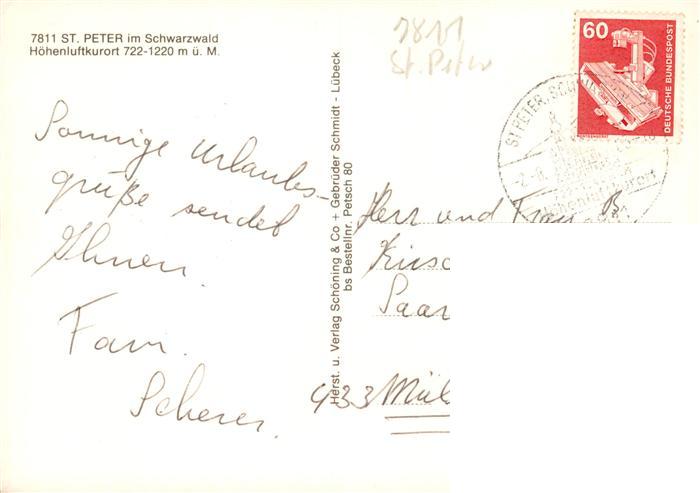 7811 ST. PETER im Schwarzwald
Höhenluftkurort 722-1220 m ü. M.
7811
St. Peter
60
DEUTSCHE BUNDESPOST
ST. PETER, SCHW
Höhenluftkurort
Sonnige Urlaubs-
grüße sendet
Ihnen
Fam.
Scherer.
Herst. u. Verlag Schöning & Co + Gebrüder Schmidt - Lübeck
bs Bestellnr. Petsch 80
Herr und Frau B.
Kirsc
Saar
933 Mül